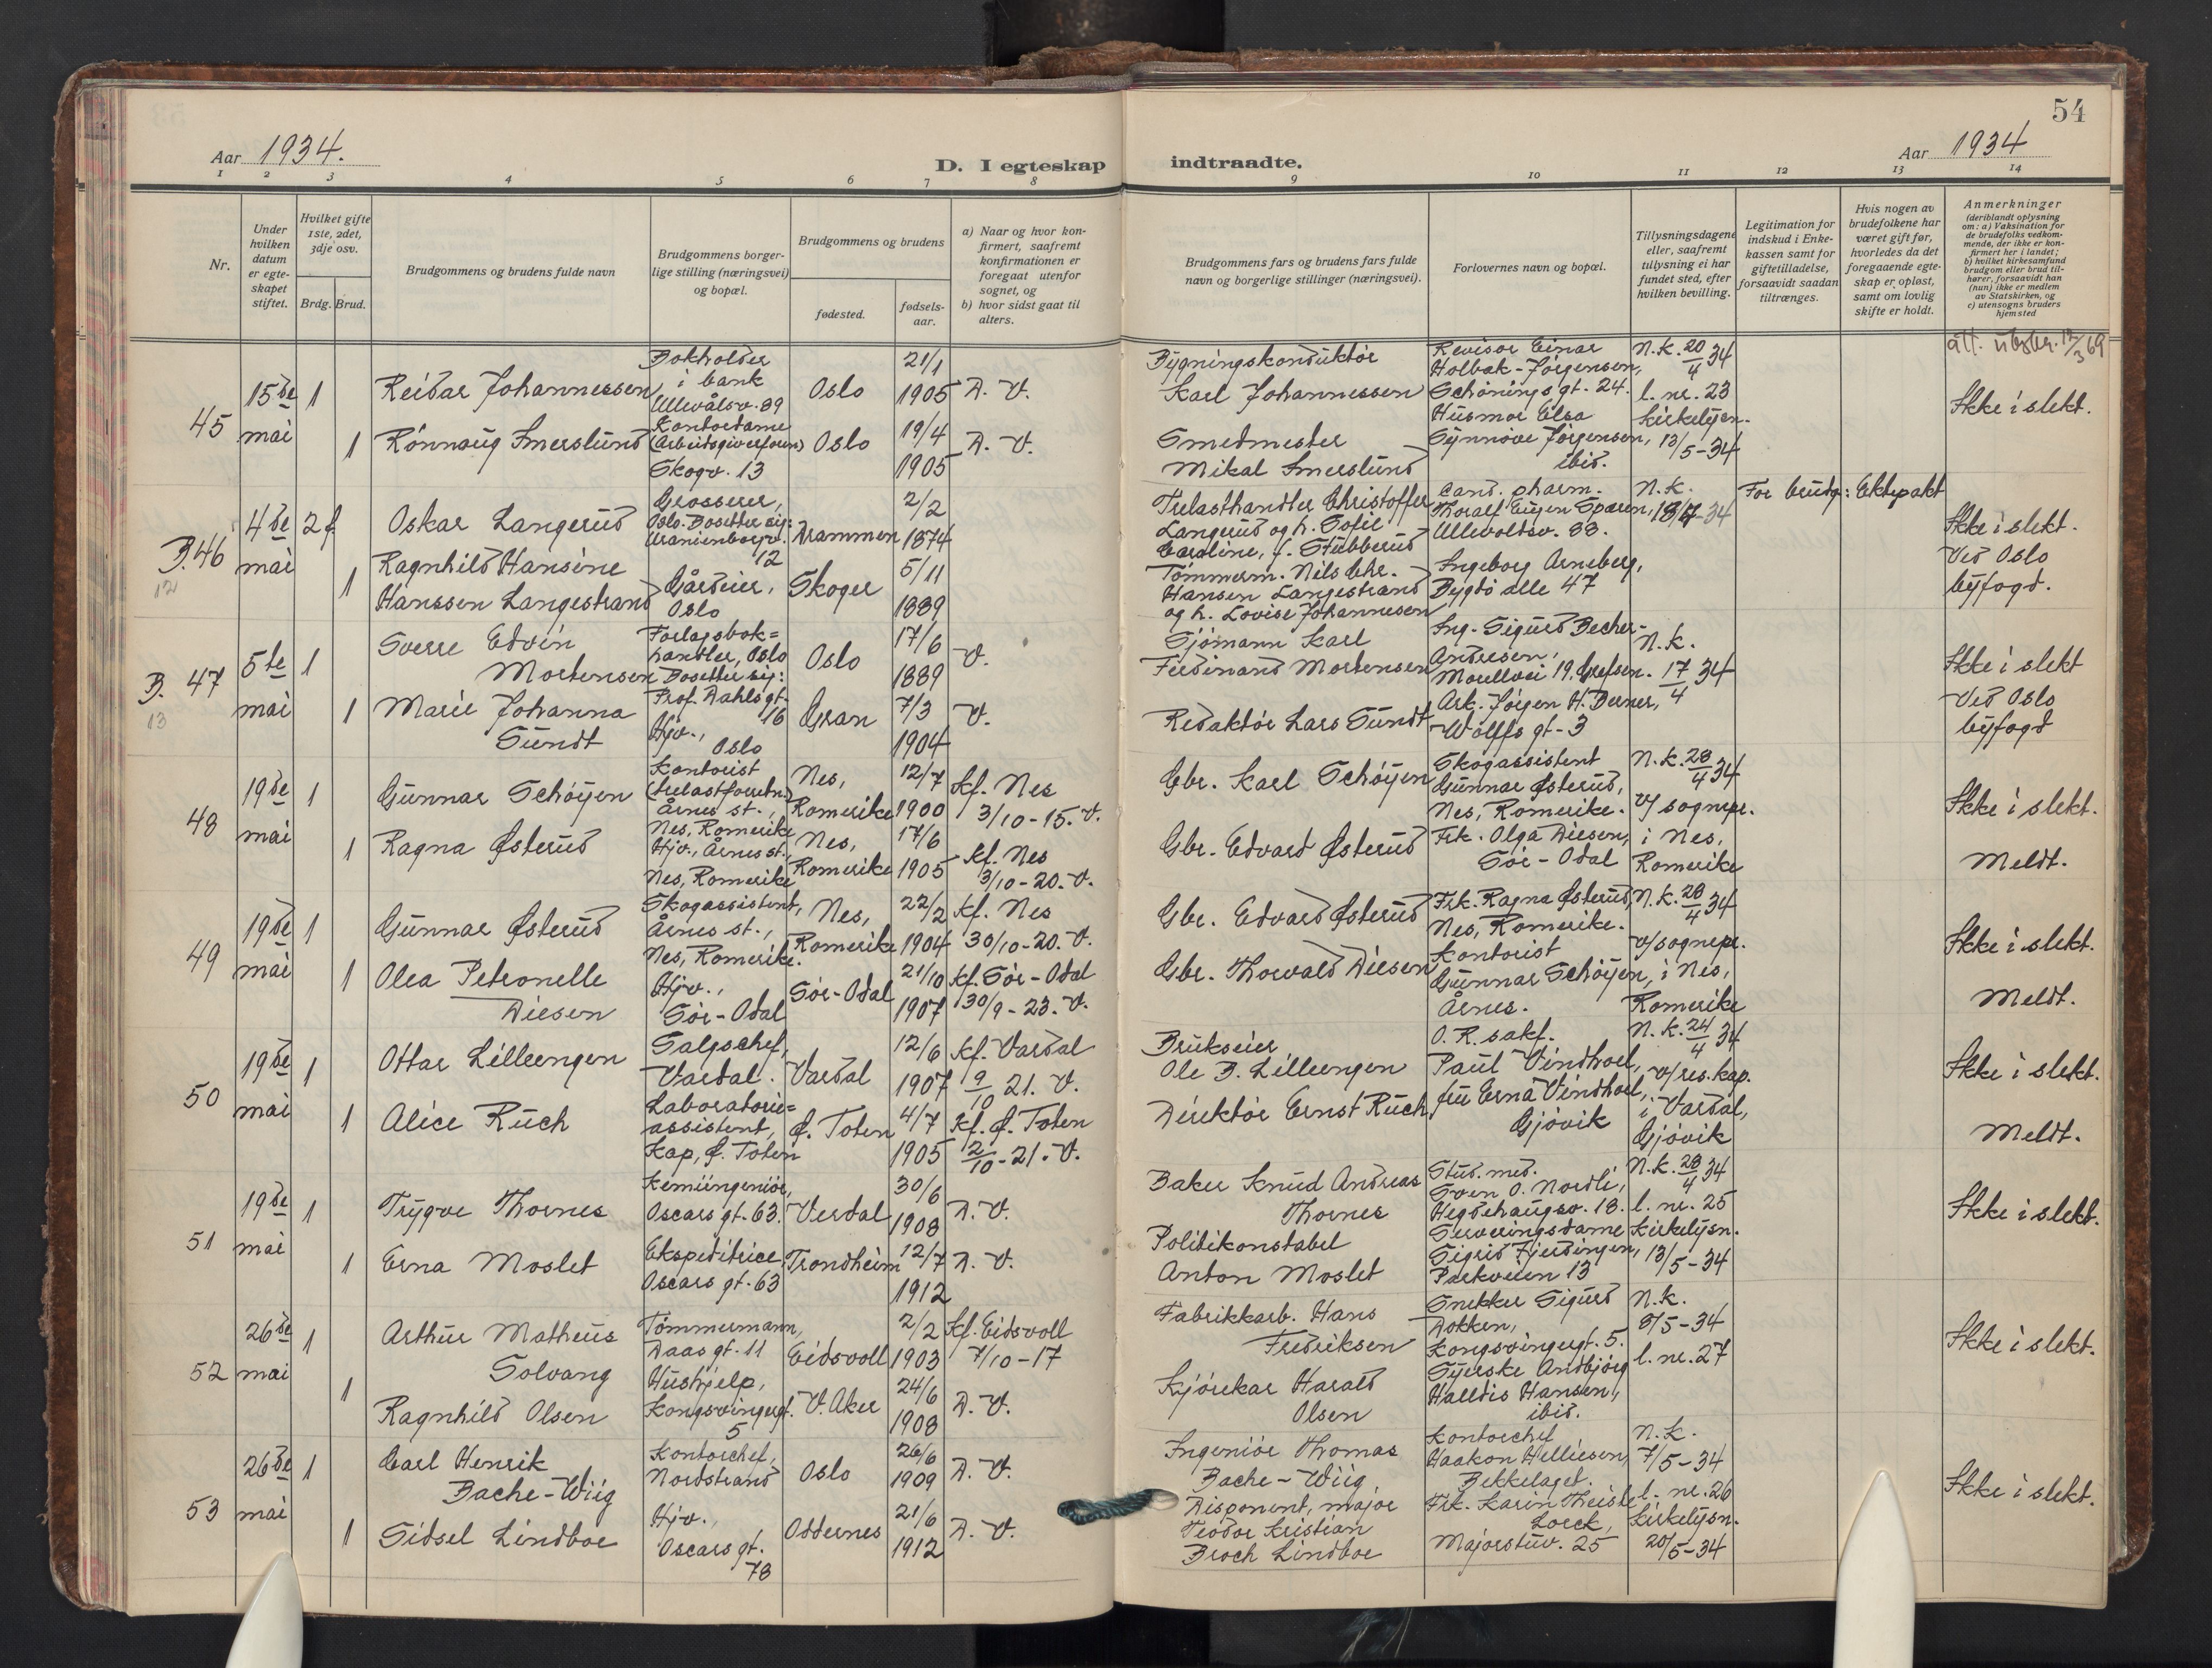 54
Aar 1934.
D. I egteskap indtraadte.
Aar 1934
1 2 3 4 5 6 7 8 9 10 11 12 13 14
Nr.
Under hvilken datum er egte-skapet stiftet.
Hvilket gifte 1ste, 2det, 3dje osv.
Brdg. Brud.
Brudgommens og brudens fulde navn
Brudgommens borger-lige stilling (næringsvei) og bopæl.
Brudgommens og brudens
fødested.
fødsels-aar.
a) Naar og hvor kon-firmert, saafremt konfirmationen er foregaat utenfor sognet, og
b) hvor sidst gaat til alters.
Brudgommens fars og brudens fars fulde navn og borgerlige stillinger (næringsvei).
Forlovernes navn og bopæl.
Tillysningsdagene eller, saafremt tillysning ei har fundet sted, efter hvilken bevilling.
Legitimation for indskud i Enke-kassen samt for giftetilladelse, forsaavidt saadan tiltrænges.
Hvis nogen av brudefolkene har været gift før, hvorledes da det foregaaende egte-skap er opløst, samt om lovlig skifte er holdt.
Anmerkninger
(deriblandt oplysning om: a) Vaksination for de brudefolks vedkom-mende, der ikke er kon-firmert her i landet; b) hvilket kirkesamfund brudgom eller brud til-hører, forsaavidt han (hun) ikke er medlem av Statskirken, og c) utensogns bruders hjemsted
att. utskr. 12/3 69
45
15de mai
1
Reidar Johannessen
Bokholder i bank Ullevålsv. 89
Oslo
21/1 1905
D. V.
Bygningskonduktør Karl Johannessen
Revisor Einar Holbak-Jørgensen, Schønings gt. 24.
N.k. 20/4 34 l. nr. 23
Ikke i slekt.
1
Rønnaug Smerslund
Kontordame (Arbeidsgiverforen) Skogv. 13
Oslo
19/4 1905
D. V.
Smedmester Mikal Smerslund
Husmor Elsa Synnøve Jørgensen, ibid.
kirkelysn. 13/5-34
B. 46
12
4de mai
2 f
Oskar Langerud
Grosserer, Oslo. Bosetter sig: Uranienborgv. 12
Drammen
2/2 1874
Trelasthandler Christoffer Langerud og h. Sofie Caroline, f. Stubberud
Cand. pharm. Thoralf Eugen Sparen, Ullevoldsv. 88.
N.k. 18/4-34
For brudg: Ektepakt
Ikke i slekt. Ved Oslo byfogd.
1
Ragnhild Hansine Hanssen Langestrand
Gårdeier, Oslo
Skoger
5/11 1889
Tømmerm. Nils Chr. Hansen Langestrand og h. Lovise Johannesen
Ingeborg Arneberg, Bygdø alle 47
B. 47
13
5te mai
1
Sverre Edvin Mortensen
Forlagsbok=handler, Oslo Bosetter sig: Prof. Dahls gt. 16
Oslo
17/6 1889
V.
Sjømann Karl Ferdinand Mortensen
Ing. Sigurd Becher-Andresen, Morellvei 19. Grefsen.
N.k. 17/4 34
Ikke i slekt Ved Oslo byfogd
1
Marie Johanna Sundt
Hjv., Oslo
Gran
7/3 1904
V.
Redaktør Lars Sundt
Ark. Jørgen H. Berner, Wolffs gt-3
48
19de mai
1
Gunnar Schøyen
Kontorist (trelastforretn.) Årnes st., Nes, Romerike
Nes, Romerike
12/7 1900
Kf. Nes 3/10-15. V.
Gbr. Karl Schøyen
Skogassistent Gunnar Østerud, Nes, Romerike.
N.k. 28/4 34 v/ sognepr. i Nes, Romerike
Ikke i slekt.
Meldt.
1
Ragna Østerud
Hjv., Årnes st., Nes, Romerike
Nes, Romerike
17/6 1905
Kf. Nes 3/10-20. V.
Gbr. Edvard Østerud
Frk. Olga Diesen, Sør-Odal
49
19de mai
1
Gunnar Østerud
Skogassistent, Årnes st., Nes, Romerike.
Nes, Romerike
22/2 1904
Kf. Nes 30/10-20. V.
Gbr. Edvard Østerud
Frk. Ragna Østerud, Nes, Romerike.
N.k. 28/4 34 v/sognepr. i Nes, Romerike
Ikke i slekt.
Meldt.
1
Olea Petronelle Diesen
Hjv., Sør-Odal
Sør-Odal
21/10 1907
Kf. Sør-Odal 30/9-23. V.
Gbr. Thorvald Diesen
Kontorist Gunnar Schøyen, Årnes.
50
19de mai
1
Ottar Lilleengen
Salgschef, Vardal.
Vardal
12/6 1907
Kf. Vardal 9/10 21. V.
Brukseier Ole B. Lilleengen
O. R. sakf. Paul Vindhoel, fru Erna Vindhoel, Gjøvik
N.k. 24/4 34 v/res. kap. i Vardal, Gjøvik
Ikke i slekt.
Meldt.
1
Alice Ruch
Laboratorie=assistent, Kap, Ø. Toten
Ø. Toten
4/7 1905
Kf. Ø. Toten 2/10-21. V.
Direktør Ernst Ruch
51
19de mai
1
Trygve Thornes
Kemiingeniør, Oscars gt. 63.
Verdal
30/6 1908
D. V.
Baker Knud Andreas Thornes
Stud. med. Sven O. Nordli, Hegdehaugsv. 18.
N.k. 28/4 34 l. nr. 25 kirkelysn. 13/5-34
Ikke i slekt.
1
Erna Moslet
Ekspeditrice, Oscars gt. 63
Trondheim
12/7 1912
D. V.
Politikonstabel Anton Moslet
Serveringsdame Sigrid Fjerdingen, Parkveien 13
52
26de mai
1
Arthur Matheus Solvang
Tømmermann, Daas gt. 11
Eidsvoll
2/2 1903
Kf. Eidsvoll 7/10-17
Fabrikkarb. Hans Fredriksen
Snekker Sigurd Dokken, Kongsvingergt. 5.
N.k. 8/5-34 l. nr. 27
Ikke i slekt.
1
Ragnhild Olsen
Hushjelp, Kongsvingergt. 5
V. Aker
24/6 1908
D. V.
Kjørekar Harald Olsen
Syerske Andbjørg Halldis Hansen, ibid.
53
26de mai
1
Carl Henrik Bache-Wiig
Kontorchef, Nordstrand
Oslo
26/6 1909
D. V.
Ingeniør Thomas Bache-Wiig
Kontorchef Haakon Helliesen, Bekkelaget.
N.k. 7/5-34 l. nr. 26 kirkelysn. 20/5-34
Ikke i slekt.
1
Sidsel Lindboe
Hjv., Oscars gt. 78
Oddernes
21/6 1912
D. V.
Disponent, major Teodor Kristian Broch Lindboe
Frk. Karin Theiste Lorck, Majorstuv. 25